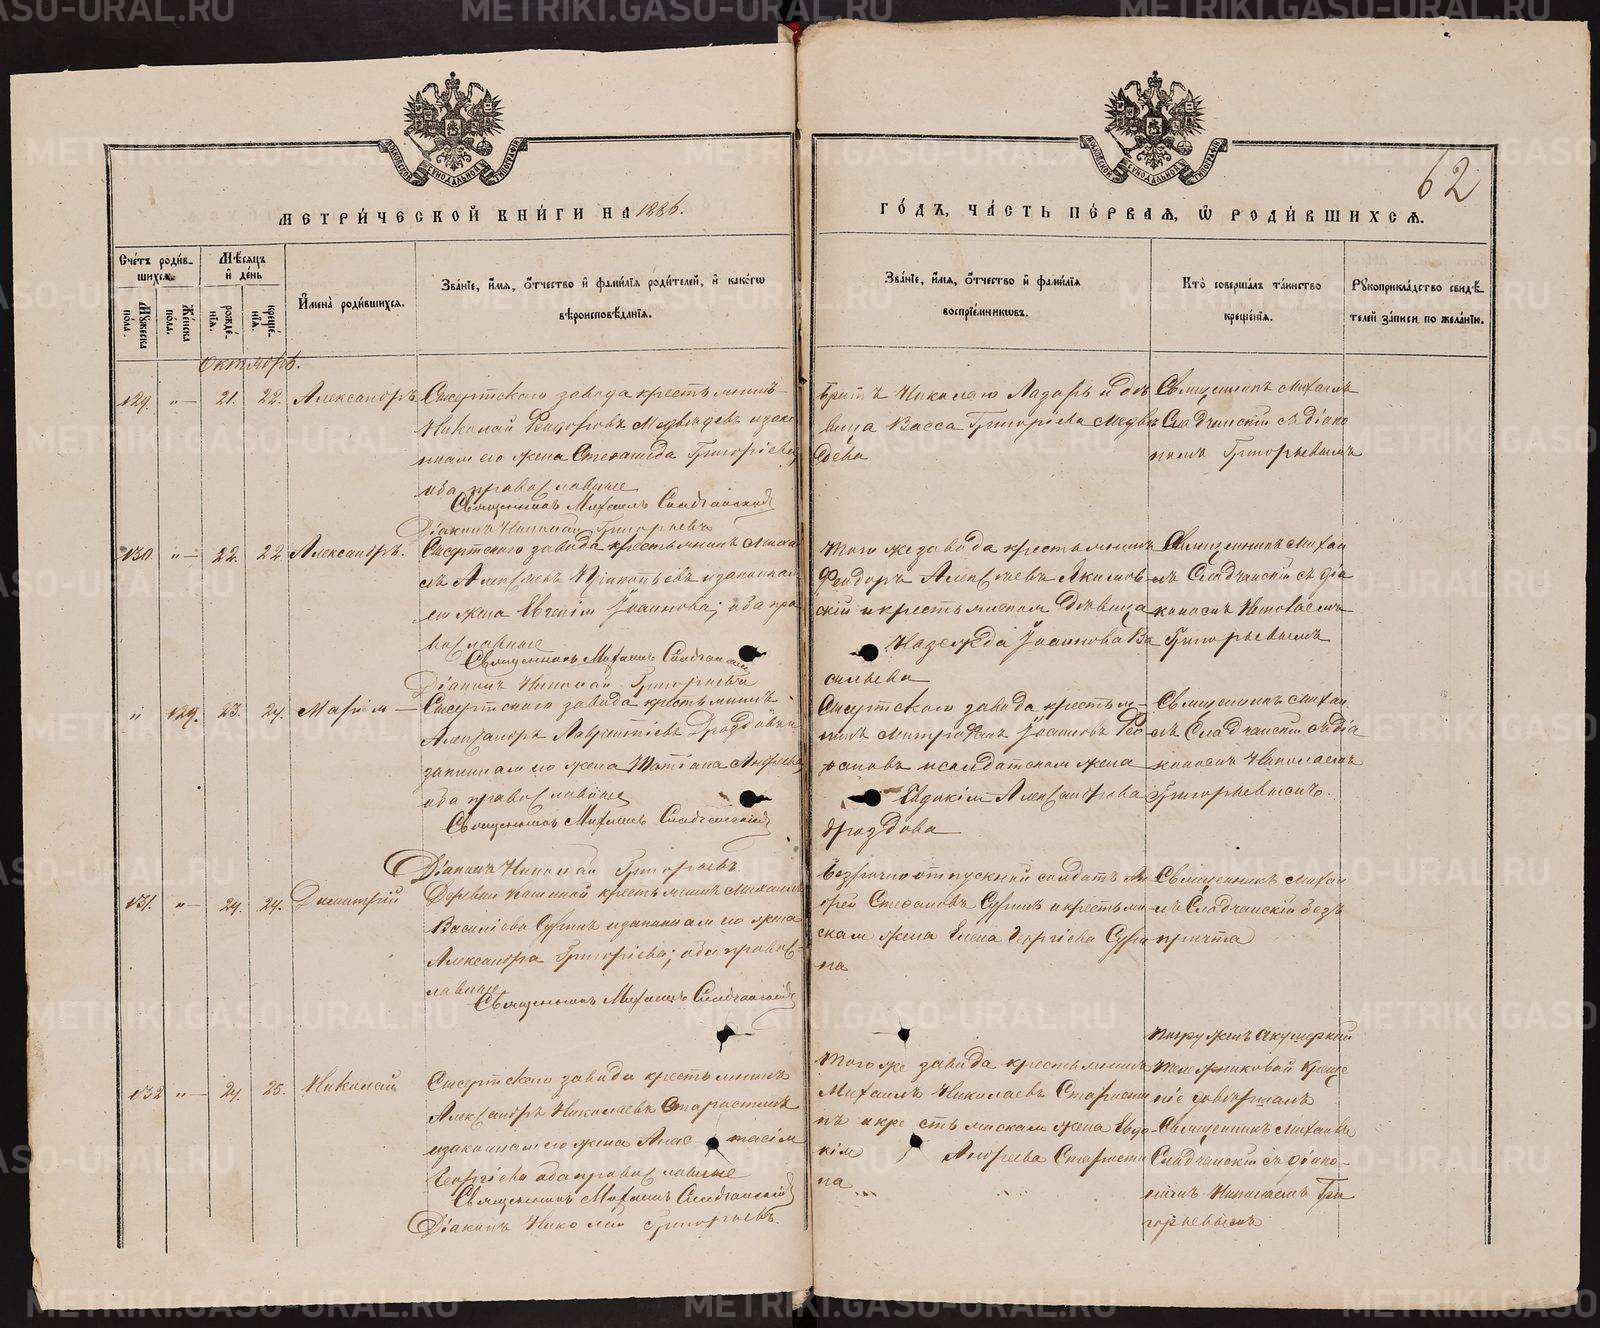 МЕТРИ́ЧЕСКОЙ КНИ́ГИ НА 1886.
ГО́ДЪ, ЧА́СТЬ ПЕ́РВАЯ, Ѡ РОДИ́ВШИХСЯ.
62
Сче́тъ роди́вшихся.
Мѣ́сяцъ и де́нь
Му́жеска по́ла.
Же́нска по́ла.
рожде́нїя.
креще́нїя.
И́мена роди́вшихся.
Зва́нїе, и́мя, о́тчество и фами́лїя роди́телей, и како́гѡ
вѣроисповѣ́данїя.
Зва́нїе, и́мя, о́тчество и фами́лїя
воспрїе́мниковъ.
Кто̀ соверша́лъ та́инство
креще́нїя.
Рꙋкоприкла́дство свидѣ́-
телей за́писи по жела́нїю.
Октябрь.
129. „— 21. 22. Александръ
Сысертскаго завода крестьянинъ
Николай Ѳедоровъ Медвѣдевъ и закон
ная его жена Степанида Григорieва
оба православные
Священникъ Михаилъ Сладчанскій
Діаконъ Николай Григорьевъ
братъ Николаю Лазарь и дѣ
вица Васса Григоріева Медвѣ
дева
Священникъ Михаилъ
Сладчанскій съ діако
номъ Григорьевымъ
130. „— 22. 22. Александръ.
Сысертскаго завода крестьянинъ Миха
илъ Алексѣевъ и законная
его жена Евгенія Іоаннова; оба пра
вославные
Священникъ Михаилъ Сладчанскій
Діаконъ Николай Григорьевъ
Того же завода крестьянинъ
Ѳеодоръ Алексѣевъ Якимов
скій и крестьянская дѣвица
Надежда Іоаннова Ва
сильева
Священникъ Михаи
лъ Сладчанскій съ діа
кономъ Николаемъ
Григорьевымъ
„ 129. 23. 24. Марія —
Сысертскаго завода крестьянинъ
Александръ Лаврентіевъ Дроздовъ и
законная его жена Татіана Андреева
оба православные
Священникъ Михаилъ Сладчанскій
Діаконъ Николай Григорьевъ
Сысертскаго завода крестья-
нинъ Митрофанъ Іоанновъ
и солдатская жена
Евдокія Александрова
Дроздова
Священникъ Михаи
лъ Сладчанскій съ діа
кономъ Николаемъ
Григорьевымъ.
131. „— 24. 24. Димитрій
Деревни крестьянинъ Михаилъ
Василіевъ Суринъ и законная его жена
Александра Григоріева; оба правос-
лавные
Священникъ Михаилъ Сладчанскій
Безсрочно отпускной солдатъ Ан
дрей Стефановъ Суринъ и крестьян
ская жена Елена Георгіева Сури
на
Священникъ Михаи
лъ Сладчанскій безъ
причта
132 „— 24. 25. Николай
Сысертскаго завода крестьянинъ
Александръ Николаевъ Старостинъ
и законная его жена Анастасія
Георгіева оба православные
Священникъ Михаилъ Сладчанскій
Діаконъ Николай Григорьевъ.
Того же завода крестьянинъ
Михаилъ Николаевъ Старости
нъ и крестьянская жена Евдо
кія Андреева Старости
на
Погруженъ акушеркой
креще
ніе совершалъ
Священникъ Михаилъ
Сладчанскій съ діако-
номъ Николаемъ Гри
горьевымъ